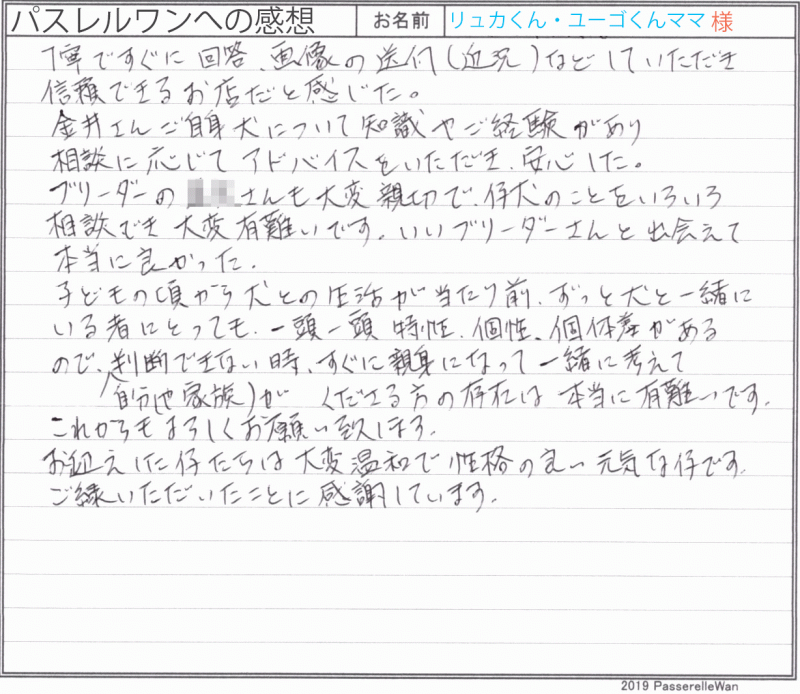 パスレルワンへの感想 お名前 リュカくん・ユーゴくんママ 様
丁寧ですぐに回答、画像の送付(近況)などしていただき
信頼できるお店だと感じた。
金井さんご自身犬について知識やご経験があり
相談に応じてアドバイスをいただき、安心した。
ブリーダーの さんも大変親切で、仔犬のことをいろいろ
相談でき大変有難いです。いいブリーダーさんと出会えて
本当に良かった。
子どもの頃から犬との生活が当たり前、ずっと犬と一緒に
いる者にとっても、一頭一頭特性、個性、個体差がある
ので、判断できない時、すぐに親身になって一緒に考えて
自分(や家族)が くださる方の存在は本当に有難いです。
これからもよろしくお願い致します。
お迎えした仔たちは大変温和で性格の良い元気な仔です。
ご縁いただいたことに感謝しています。
2019 PasserelleWan